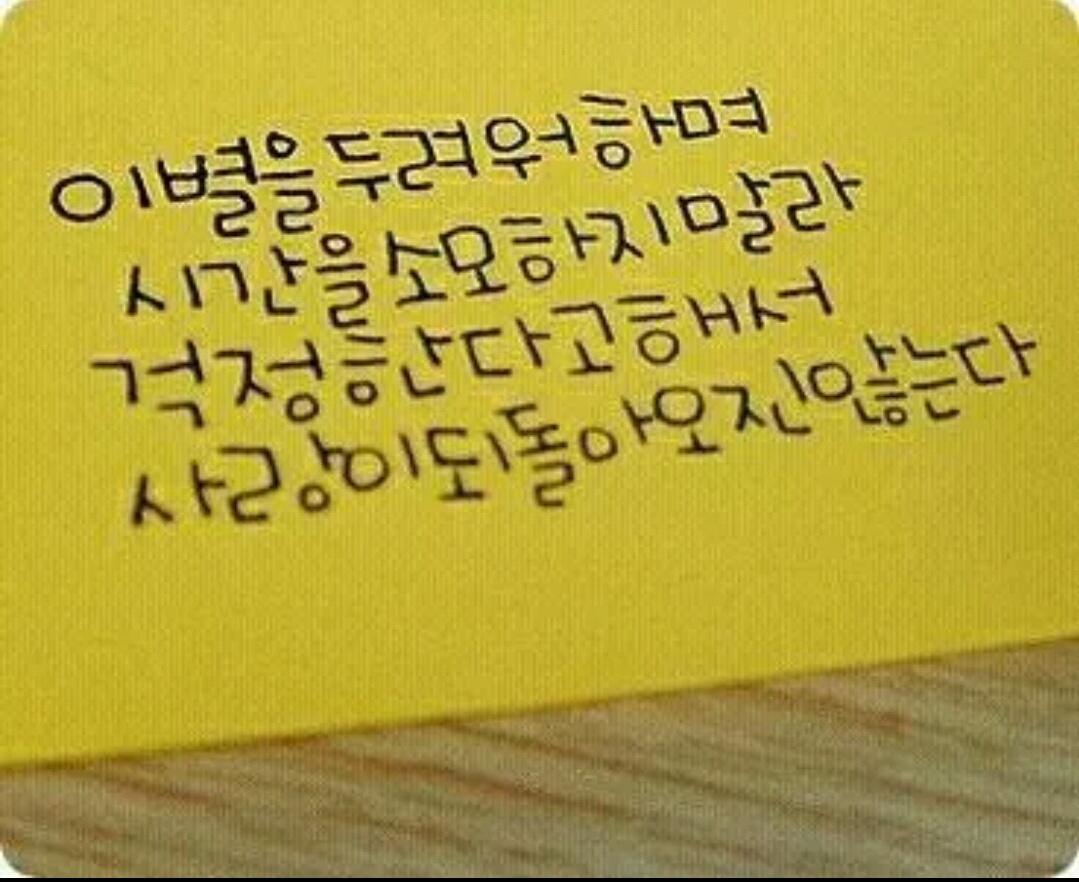 이별을 두려워하며
시간을 소모하지 말라
걱정한다고 해서
사랑이 되돌아오진 않는다